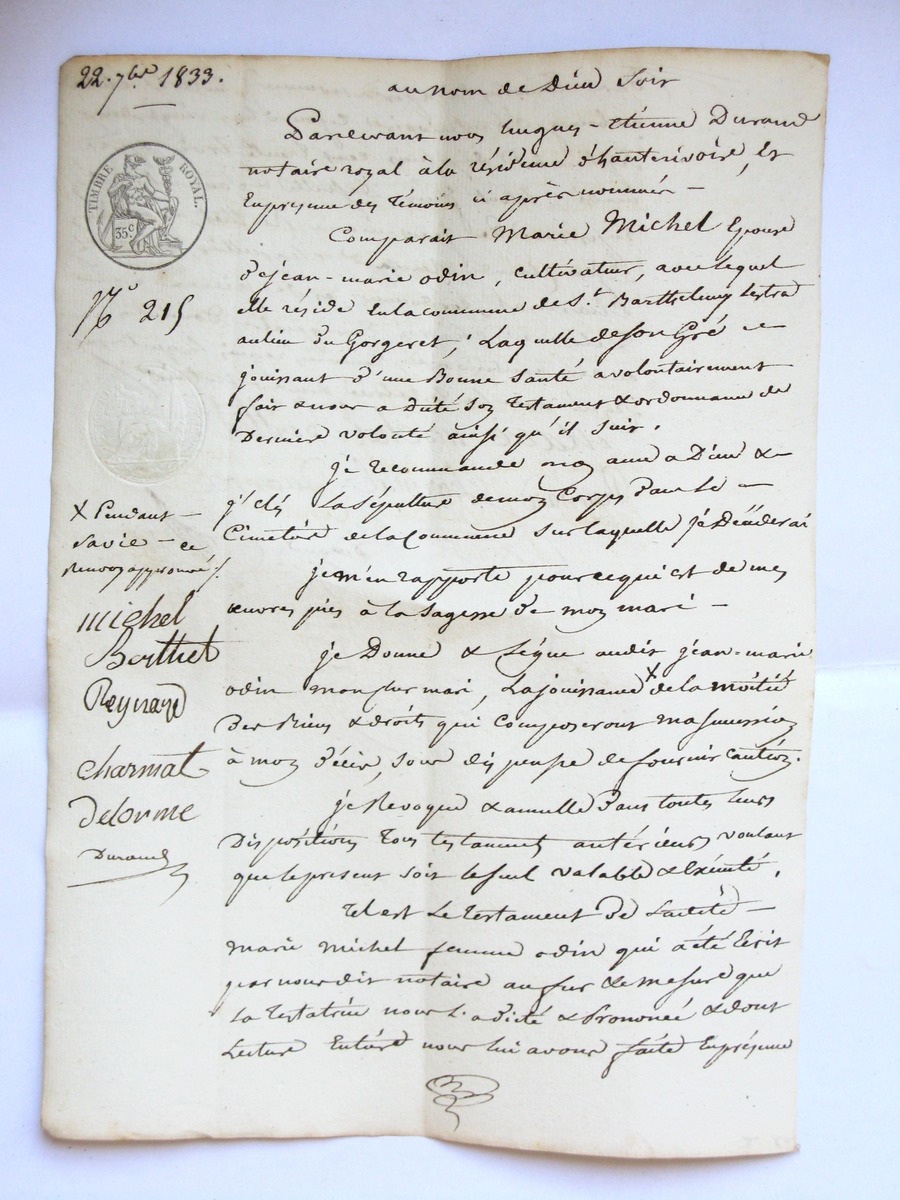 22. 7bre 1833.
TIMBRE ROYAL.
35c
No 215
au nom de Dieu soit
Pardevant nous hugues-étienne Durand
notaire royal à la résidence d'hauterivoire, Et
En presence des Temoins ci après nommés —
Comparait Marie Michel Epouse
de jean-marie odin, cultivateur, avec lequel
elle réside en la commune de St Barthelemy Lestra
au lieu du Gorgeret; Laquelle de son Gré &
jouissant d'une Bonne Santé a volontairement
fait & nous a Dicté Son Testament & ordonnance de
Derniere volonté ainsi qu'il suit.
je recommande mon ame a Dieu &
j'élis La Sépulture de mon Corps Dans Le —
Cimetière de la Commune Sur laquelle je Décèderai
je m'en rapporte pour ce qui est de mes
œuvres pies à la Sagesse de mon mari —
je Donne & Lègue audit jean-marie
odin mon sur mari, La jouissance x de la moitié
Des Biens & droits qui composeront ma succession
à mon Décès, sous dispense de fournir caution.
je Revoque & annulle Dans toutes leurs
Dispositions Tous testaments antérieurs voulant
que le present soit le seul valable & Exécuté.
Tel est Le Testament de Ladite —
marie michel femme odin qui a été Ecrit
par nous dit notaire au fur & mesure que
La Testatrice nous l'a dicté & Prononcé & dont
Lecture Entière nous lui avons faite En présence
x Pendant —
sa vie — ce
Renvoi approuvé /.
michel
Berthet
Reynard
charmat
delorme
Durand